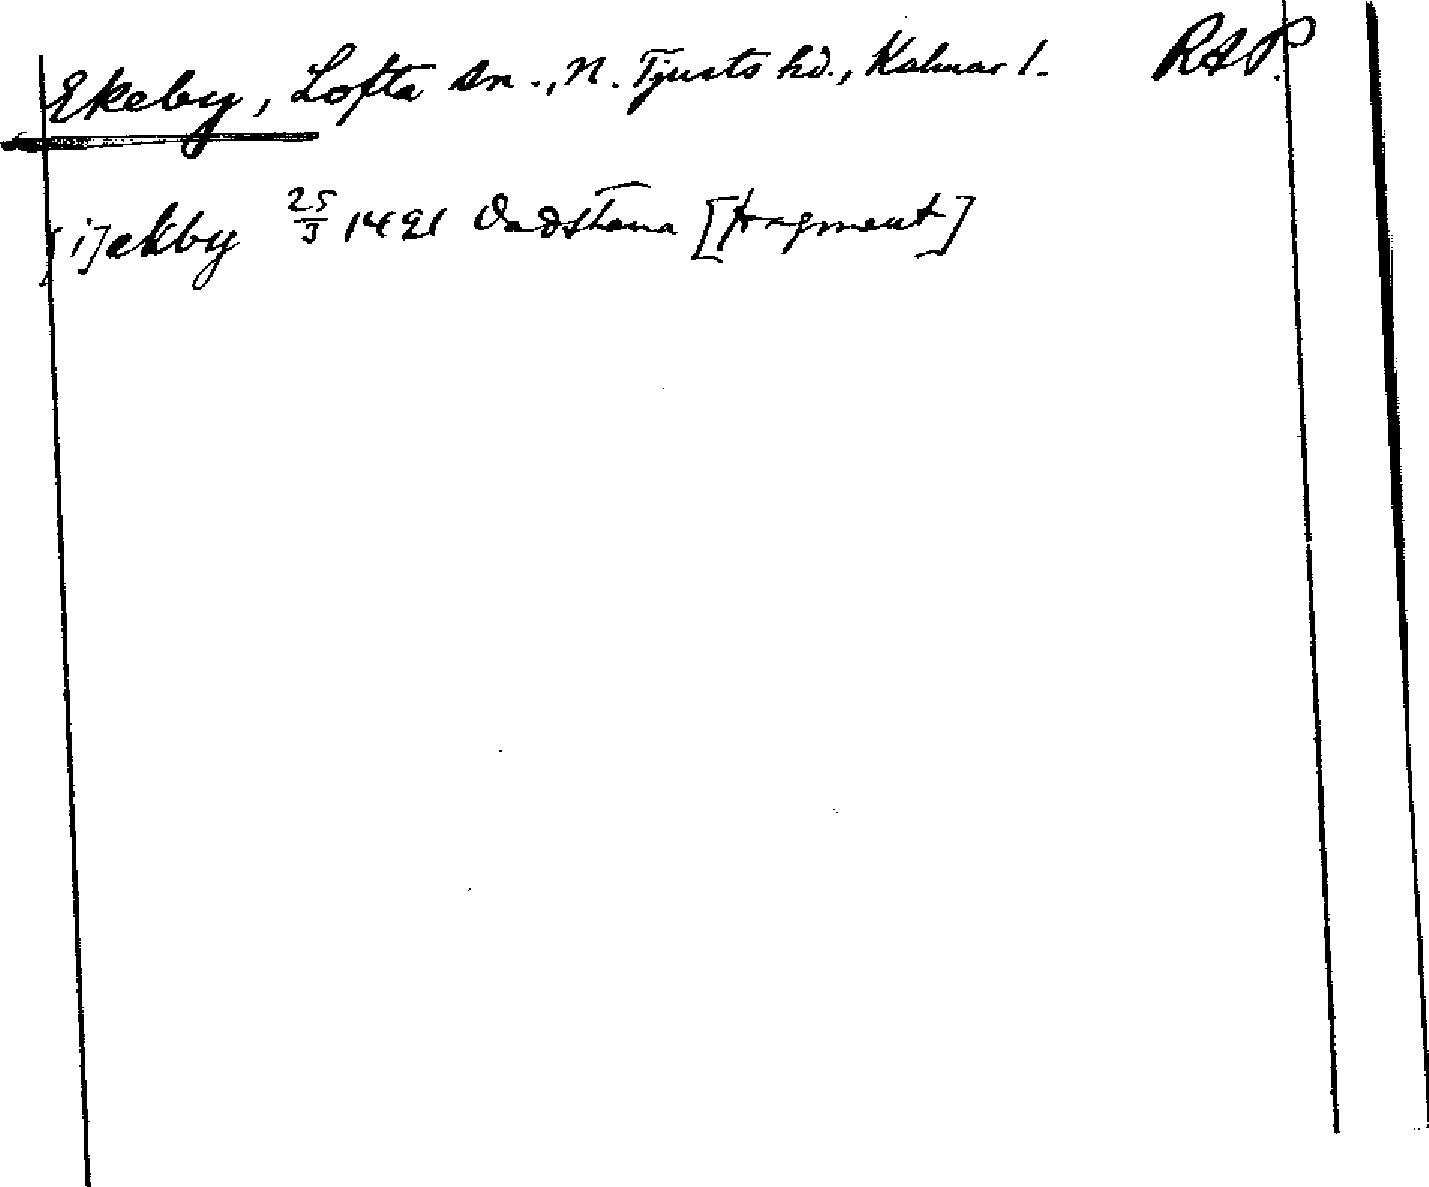 Ekeby, Lofta sn., N. Tjusts hd., Kalmar l. RAP.
[i] ekby 25/3 1421 Vadstena [fragment]